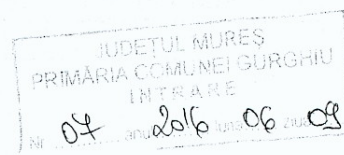 JUDEŢUL MUREŞ
PRIMĂRIA COMUNEI GURGHIU
INTRARE
Nr. 07 anul 2016 luna 06 ziua 09